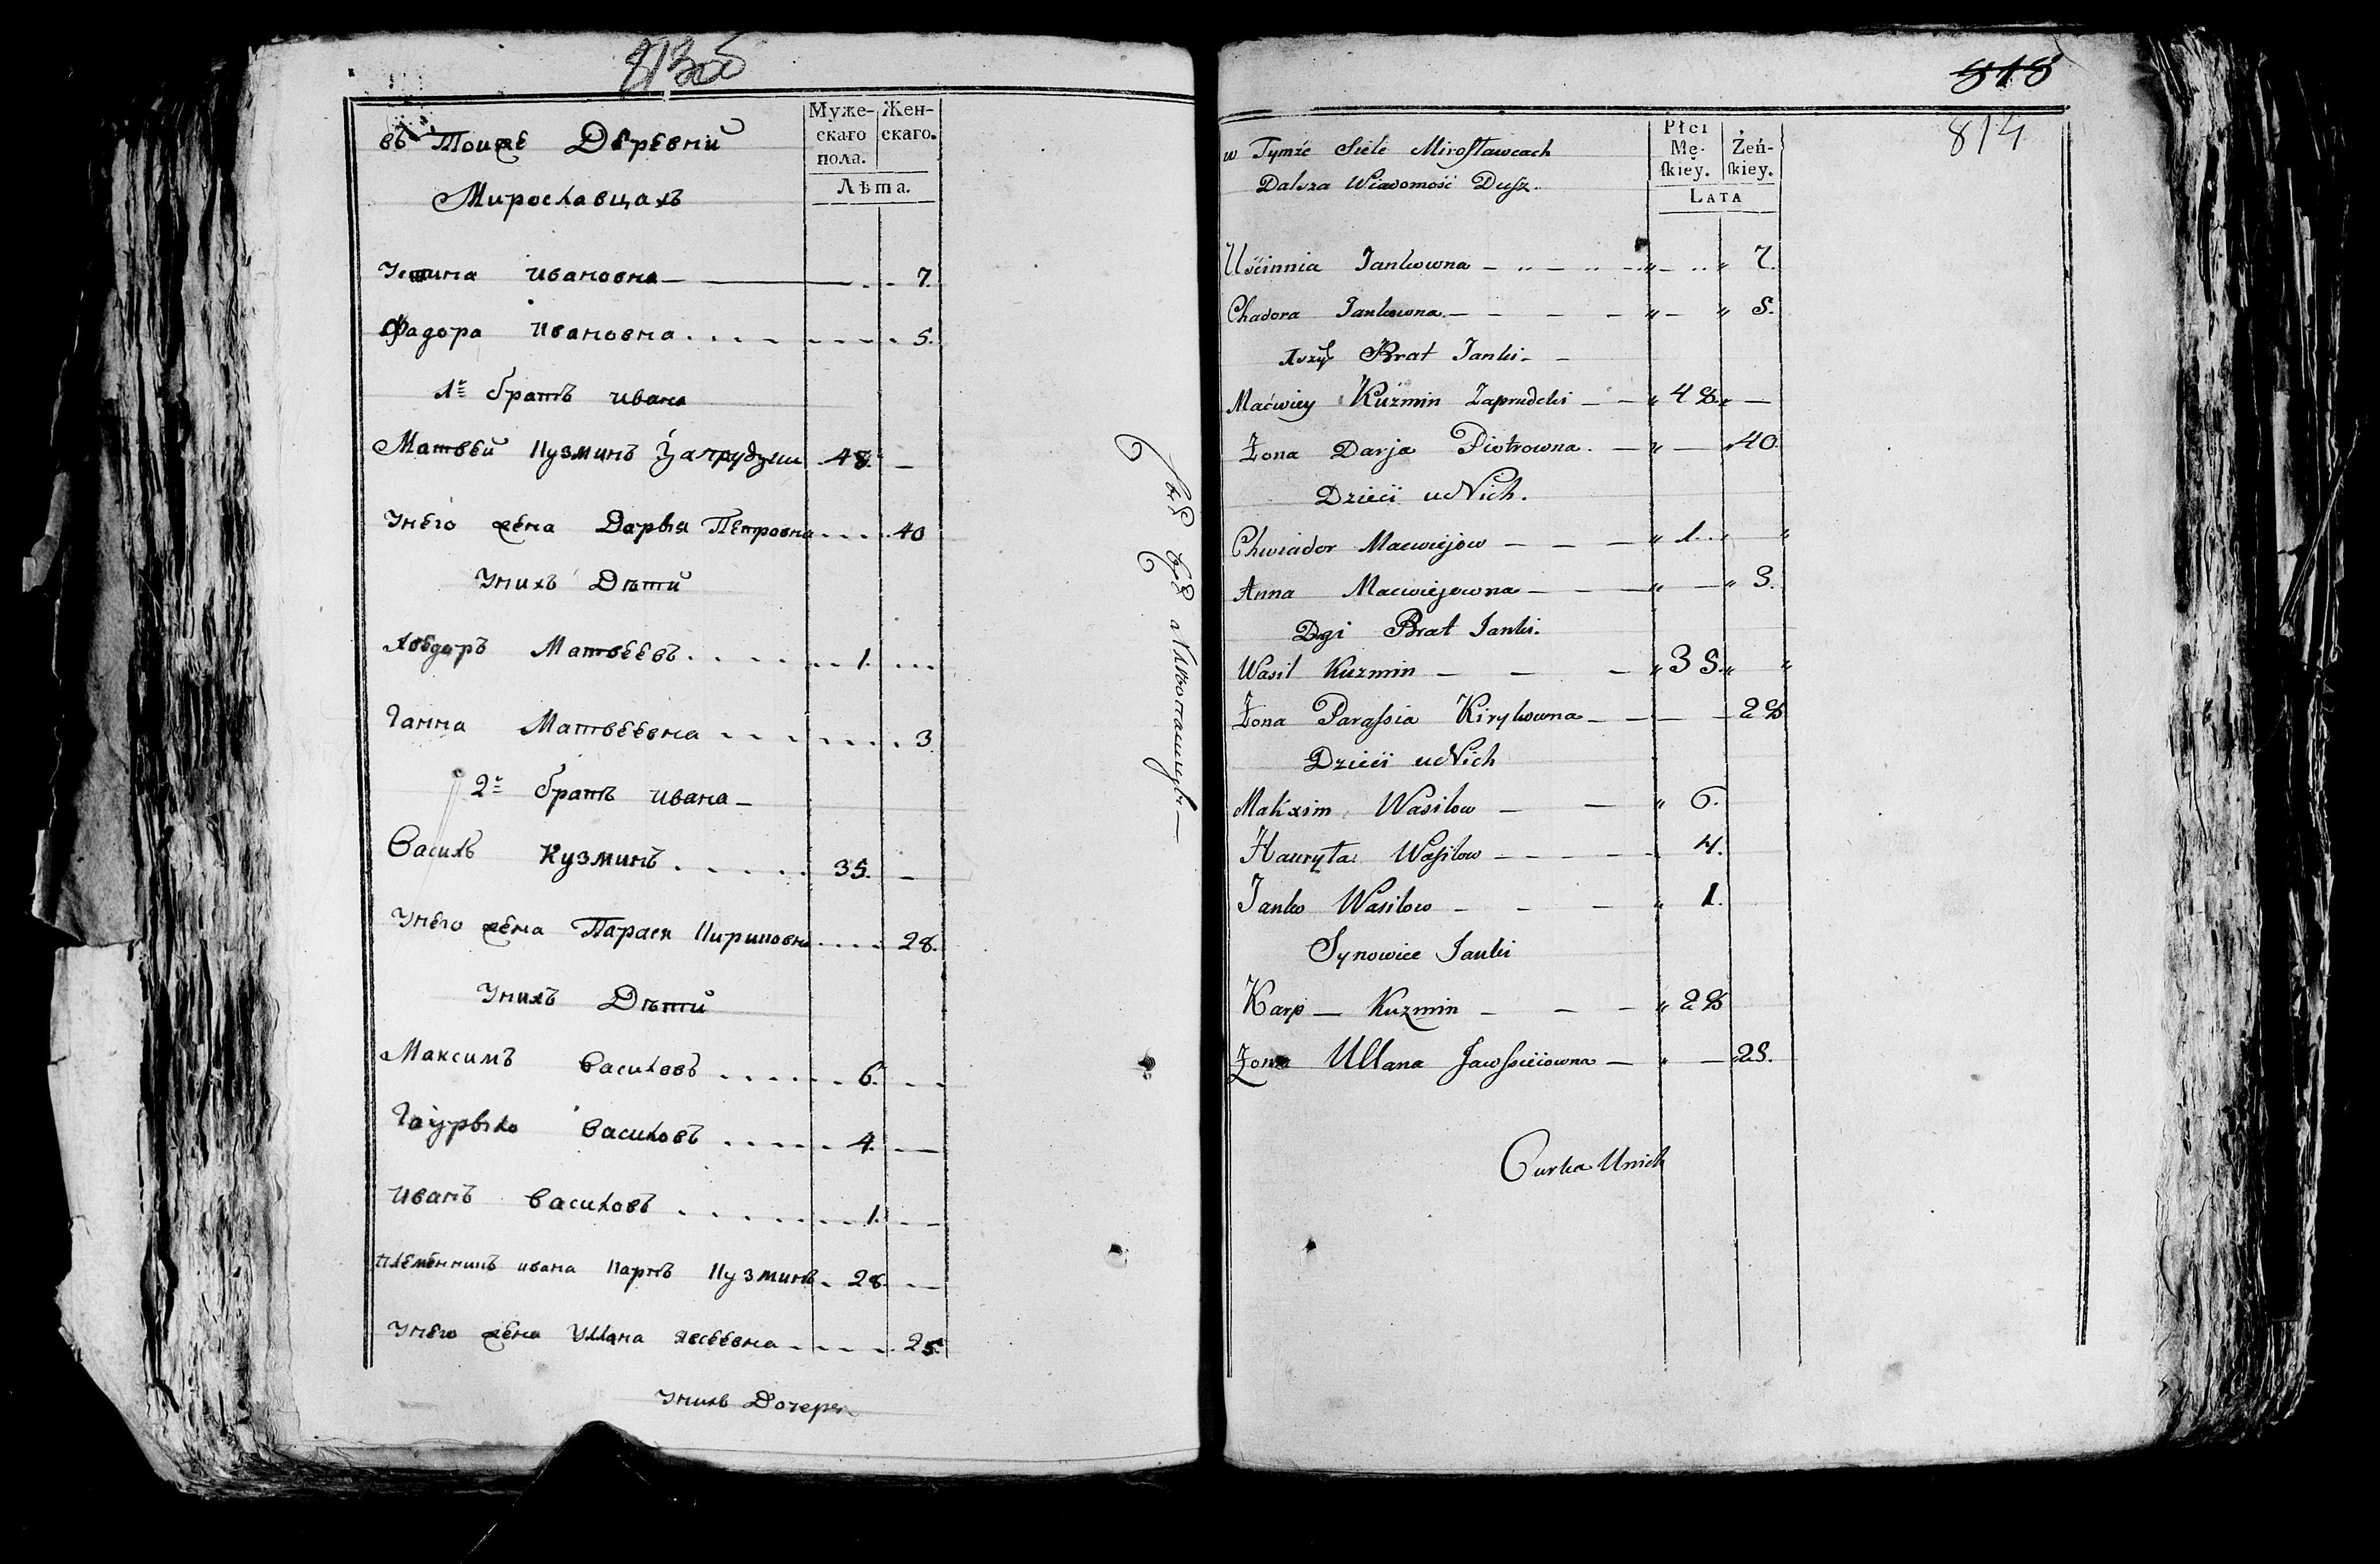 813об
Муже-
скаго
пола.
Жен-
скаго.
Лѣта.
въ Тоиже Деревни
Мирославцахъ
Устина Ивановна 7.
Фадора Ивановна 5.
1й братъ Ивана
Матвѣй Кузминъ Запрудzки 48. —
Унего жена Дарья Петровна 40
Унихъ Дѣти
Хведоръ Матвеевъ 1.
Ганна Матвеевна 3.
2й братъ Ивана —
Василь Кузминъ 35. —
Унего жена Параск Кириковна 28.
Унихъ Дѣти
Максимъ Василовъ 6.
Гаурыло Василовъ 4. —
Иванъ Василовъ 1. —
племенникъ Ивана Карпъ Кузминъ 28. —
Унего жена Уллана Явсеевна 25.
Унихъ Дочерь
818
814
Płci
Mę-
ſkiey.
Żeń-
ſkiey.
LATA
w Tymże Siele Mirosławcach
Dalsza Wiadomość Dusz.
Uścinnia Jankowna 7.
Chadora Jankowna 5.
1szy Brat Janki
Maćwiey Kuźmin Zaprudzki 48. —
Żona Darja Piotrowna 40.
Dzieci u Nich.
Chwiador Maćwiejow 1.
Anna Maćwiejowna 3.
Dgi Brat Janki.
Wasil Kuzmin 35.
Żona Parassia Kirykowna 28
Dzieci u Nich
Makxim Wasilow 6.
Hauryła Wasilow 4.
Janko Wasilow 1.
Synowiec Janki
Karp — Kuzmin 28
Żona Ullana Jawsieiowna 25.
Curka Unich